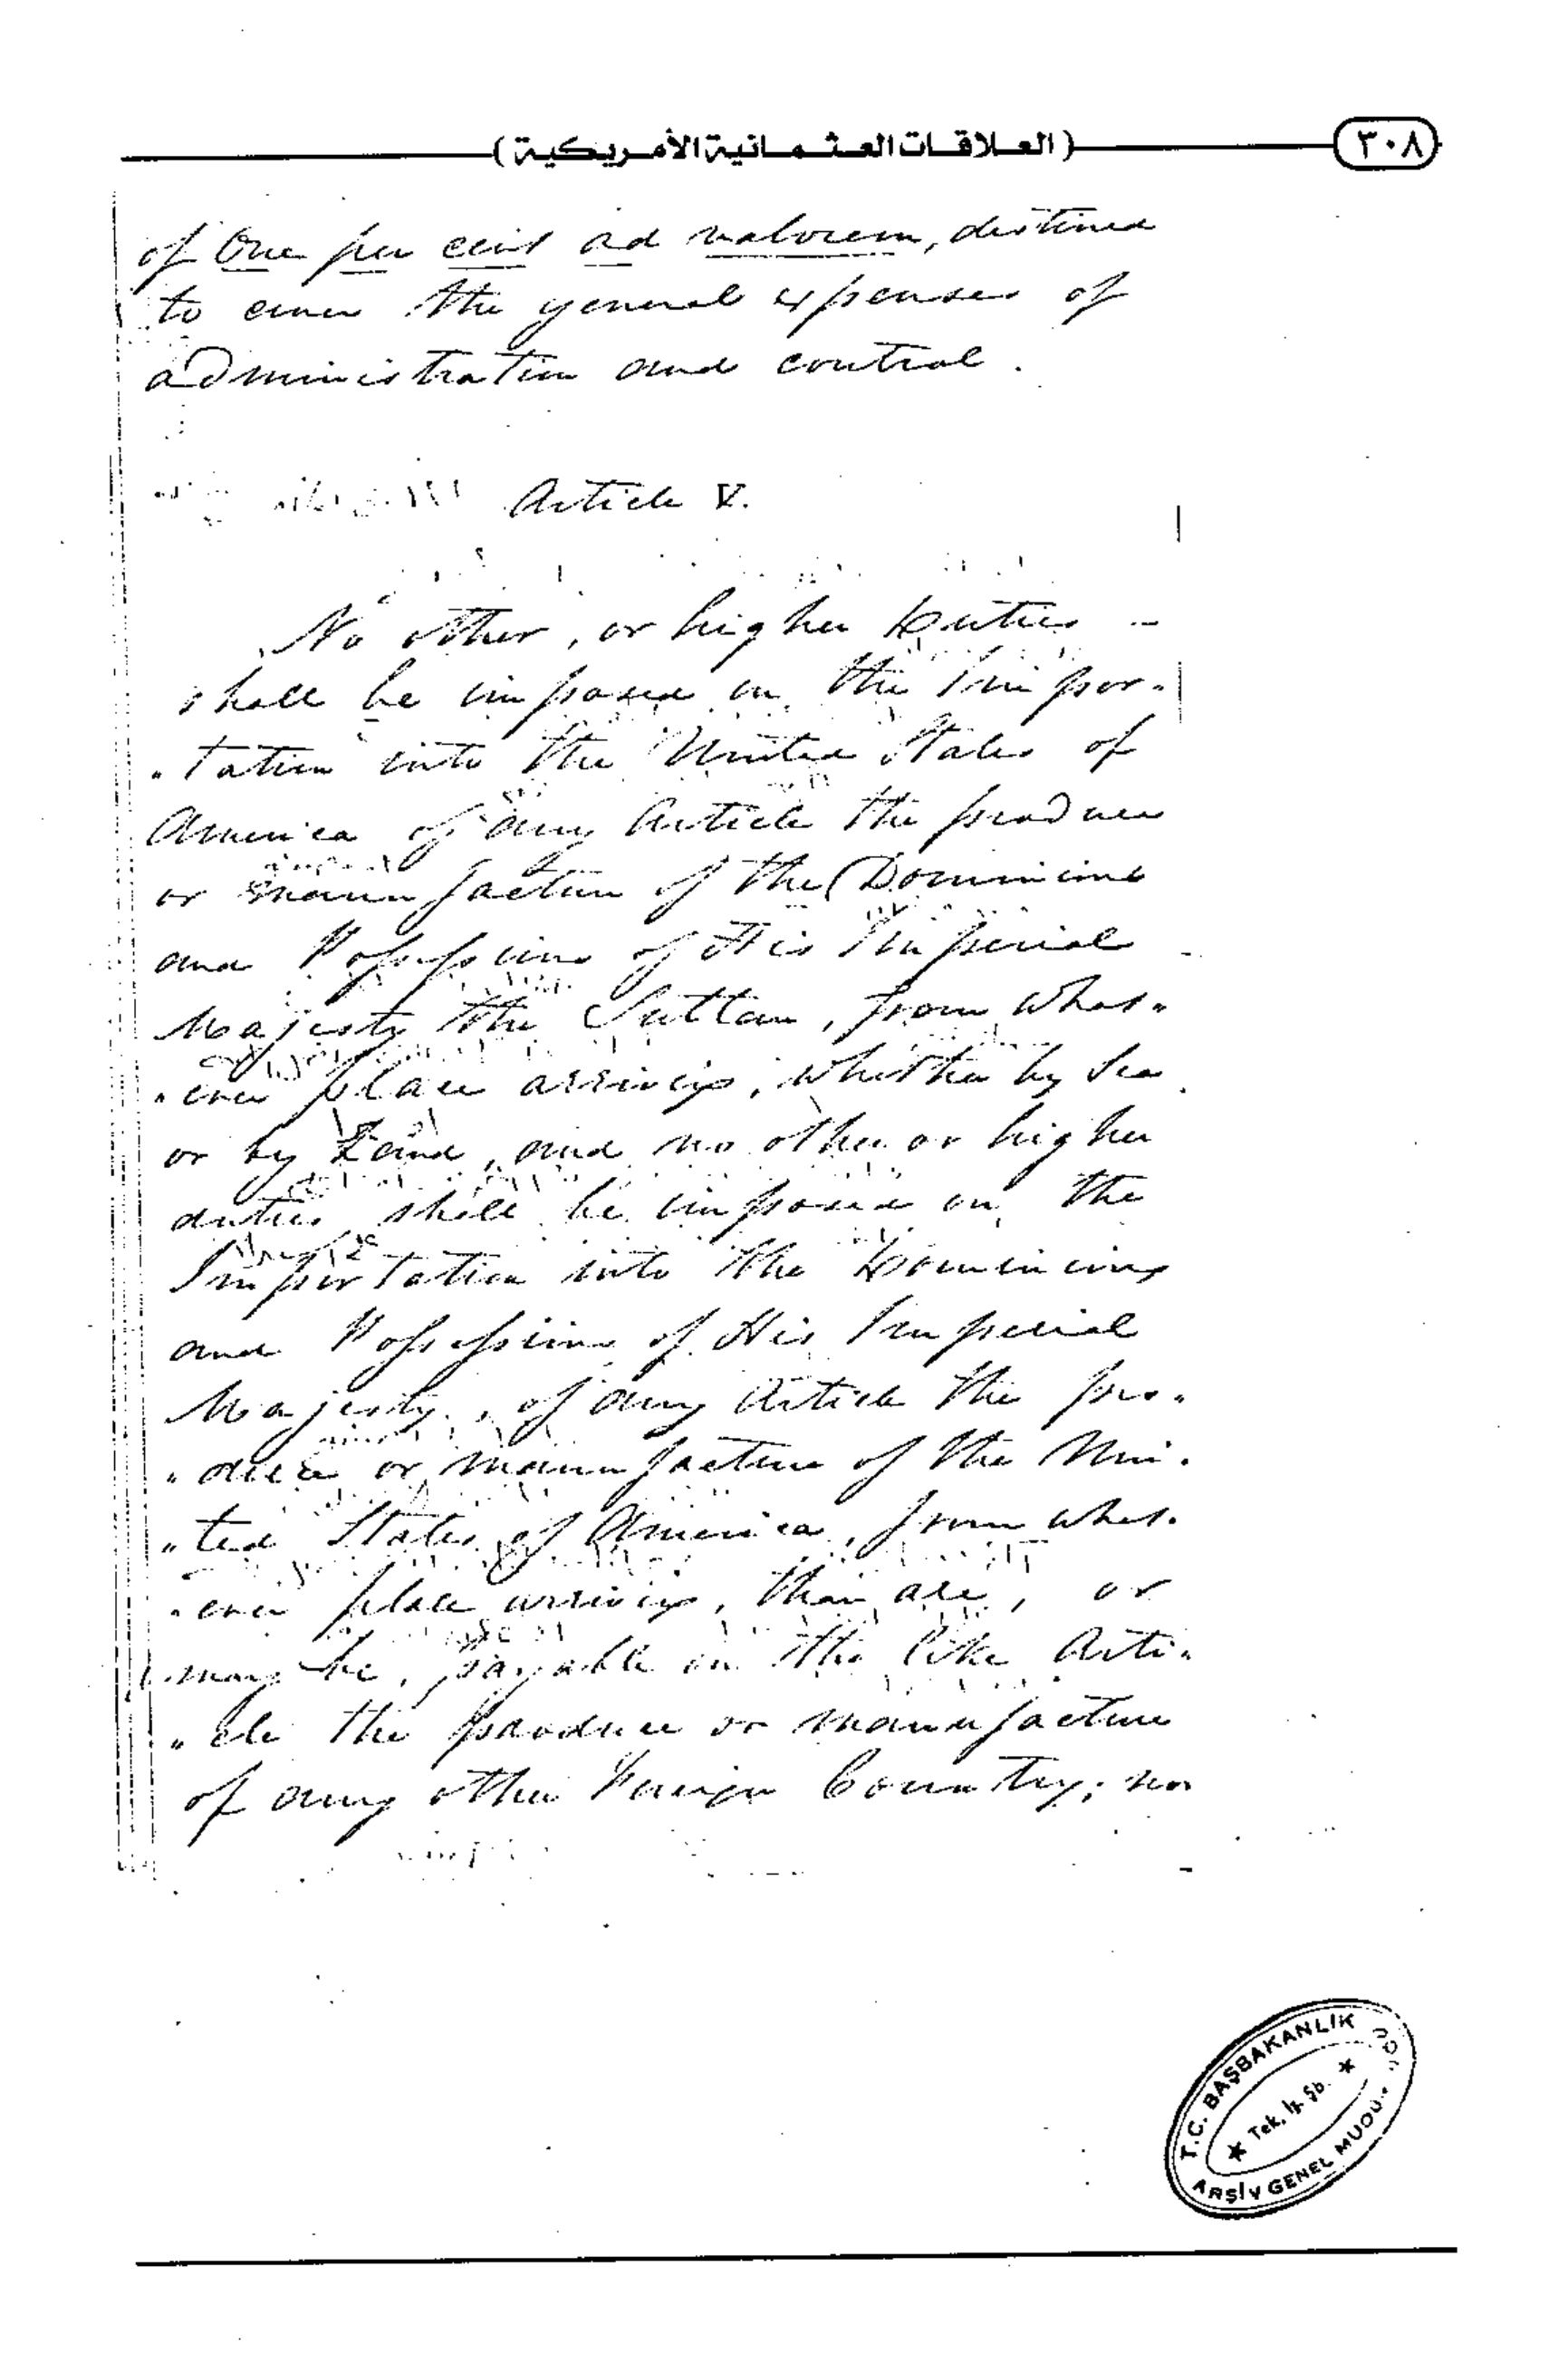 (العلاقات العثمانية الأمريكية)
٣٠٨
of One per cent ad valorem, destined
to cover the general expenses of
administration and control.
Article V.
No other, or higher Duties
shall be imposed on the Impor-
-tation into the United States of
America of any Article the produce
or manufacture of the Dominions
and Possessions of His Imperial
Majesty the Sultan, from what-
-ever place arriving, whether by Sea
or by Land, and no other or higher
duties shall be imposed on the
Importation into the Dominions
and Possessions of His Imperial
Majesty, of any Article the pro-
-duce or manufacture of the Uni-
-ted States of America, from what-
-ever place arriving, than are, or
may be, payable on the like Arti-
-cle the produce or manufacture
of any other Foreign Country; nor
T.C. BAŞBAKANLIK
★ Tek. İş. Şb. ★
ARŞİV GENEL